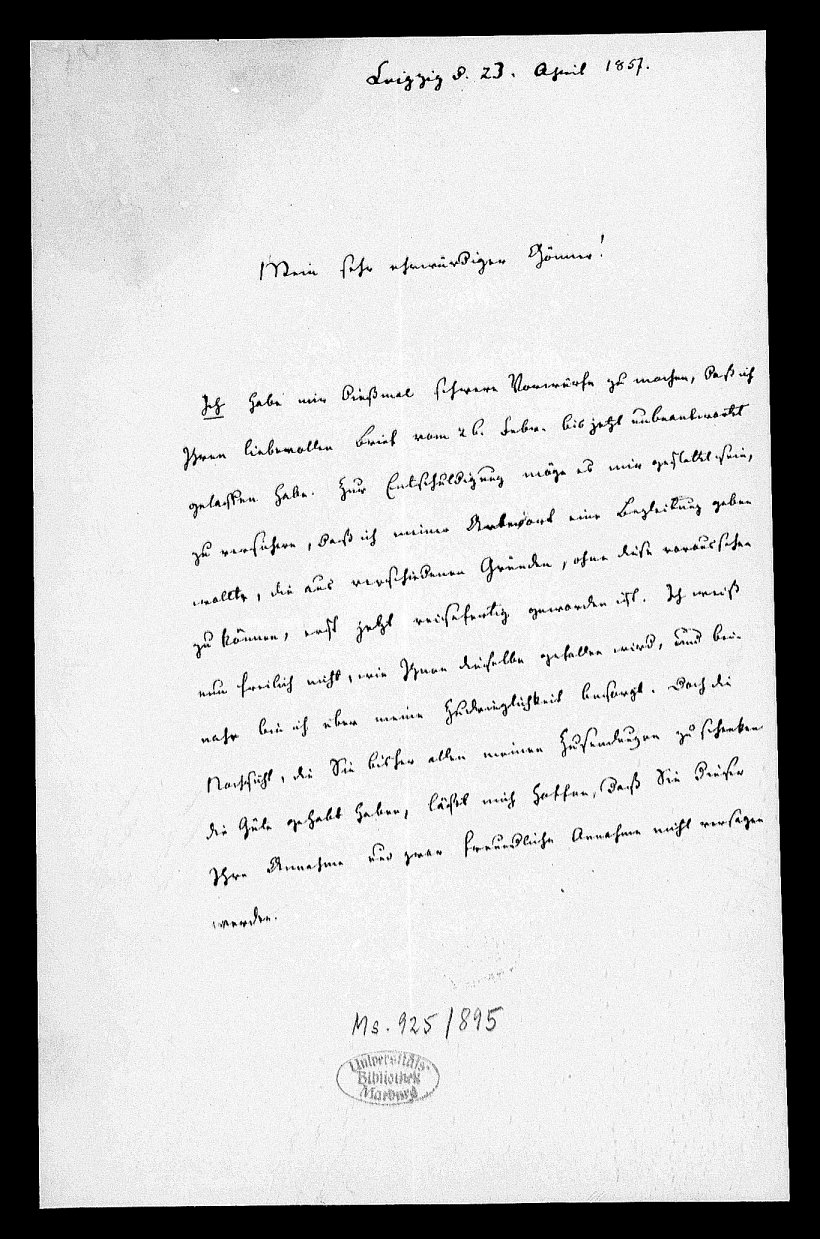 Leipzig d. 23. April 1857.
Mein sehr ehrwürdiger Gönner!
Ich habe mir dießmal schwere Vorwürfe zu machen, daß ich
Ihren liebevollen Brief vom 26. Febr. bis jetzt unbeantwortet
gelassen habe. Zur Entschuldigung möge es mir gestattet sein,
zu versichern, daß ich meiner Antwort eine Begleitung geben
wollte, die aus verschiedenen Gründen, ohne dieß voraussehen
zu können, erst jetzt reisefertig geworden ist. Ich weiß
nun freilich nicht, wie Ihnen dieselbe gefallen wird, und bei-
nahe bin ich über meine Zudringlichkeit besorgt. Doch die
Nachsicht, die Sie bisher allen meinen Zusendungen zu schenken
die Güte gehabt haben, läßt mich hoffen, daß Sie dieser
Ihre Annahme und zwar freundliche Annahme nicht versagen
werden.
Ms. 925/895
Universitäts-
Bibliothek
Marburg